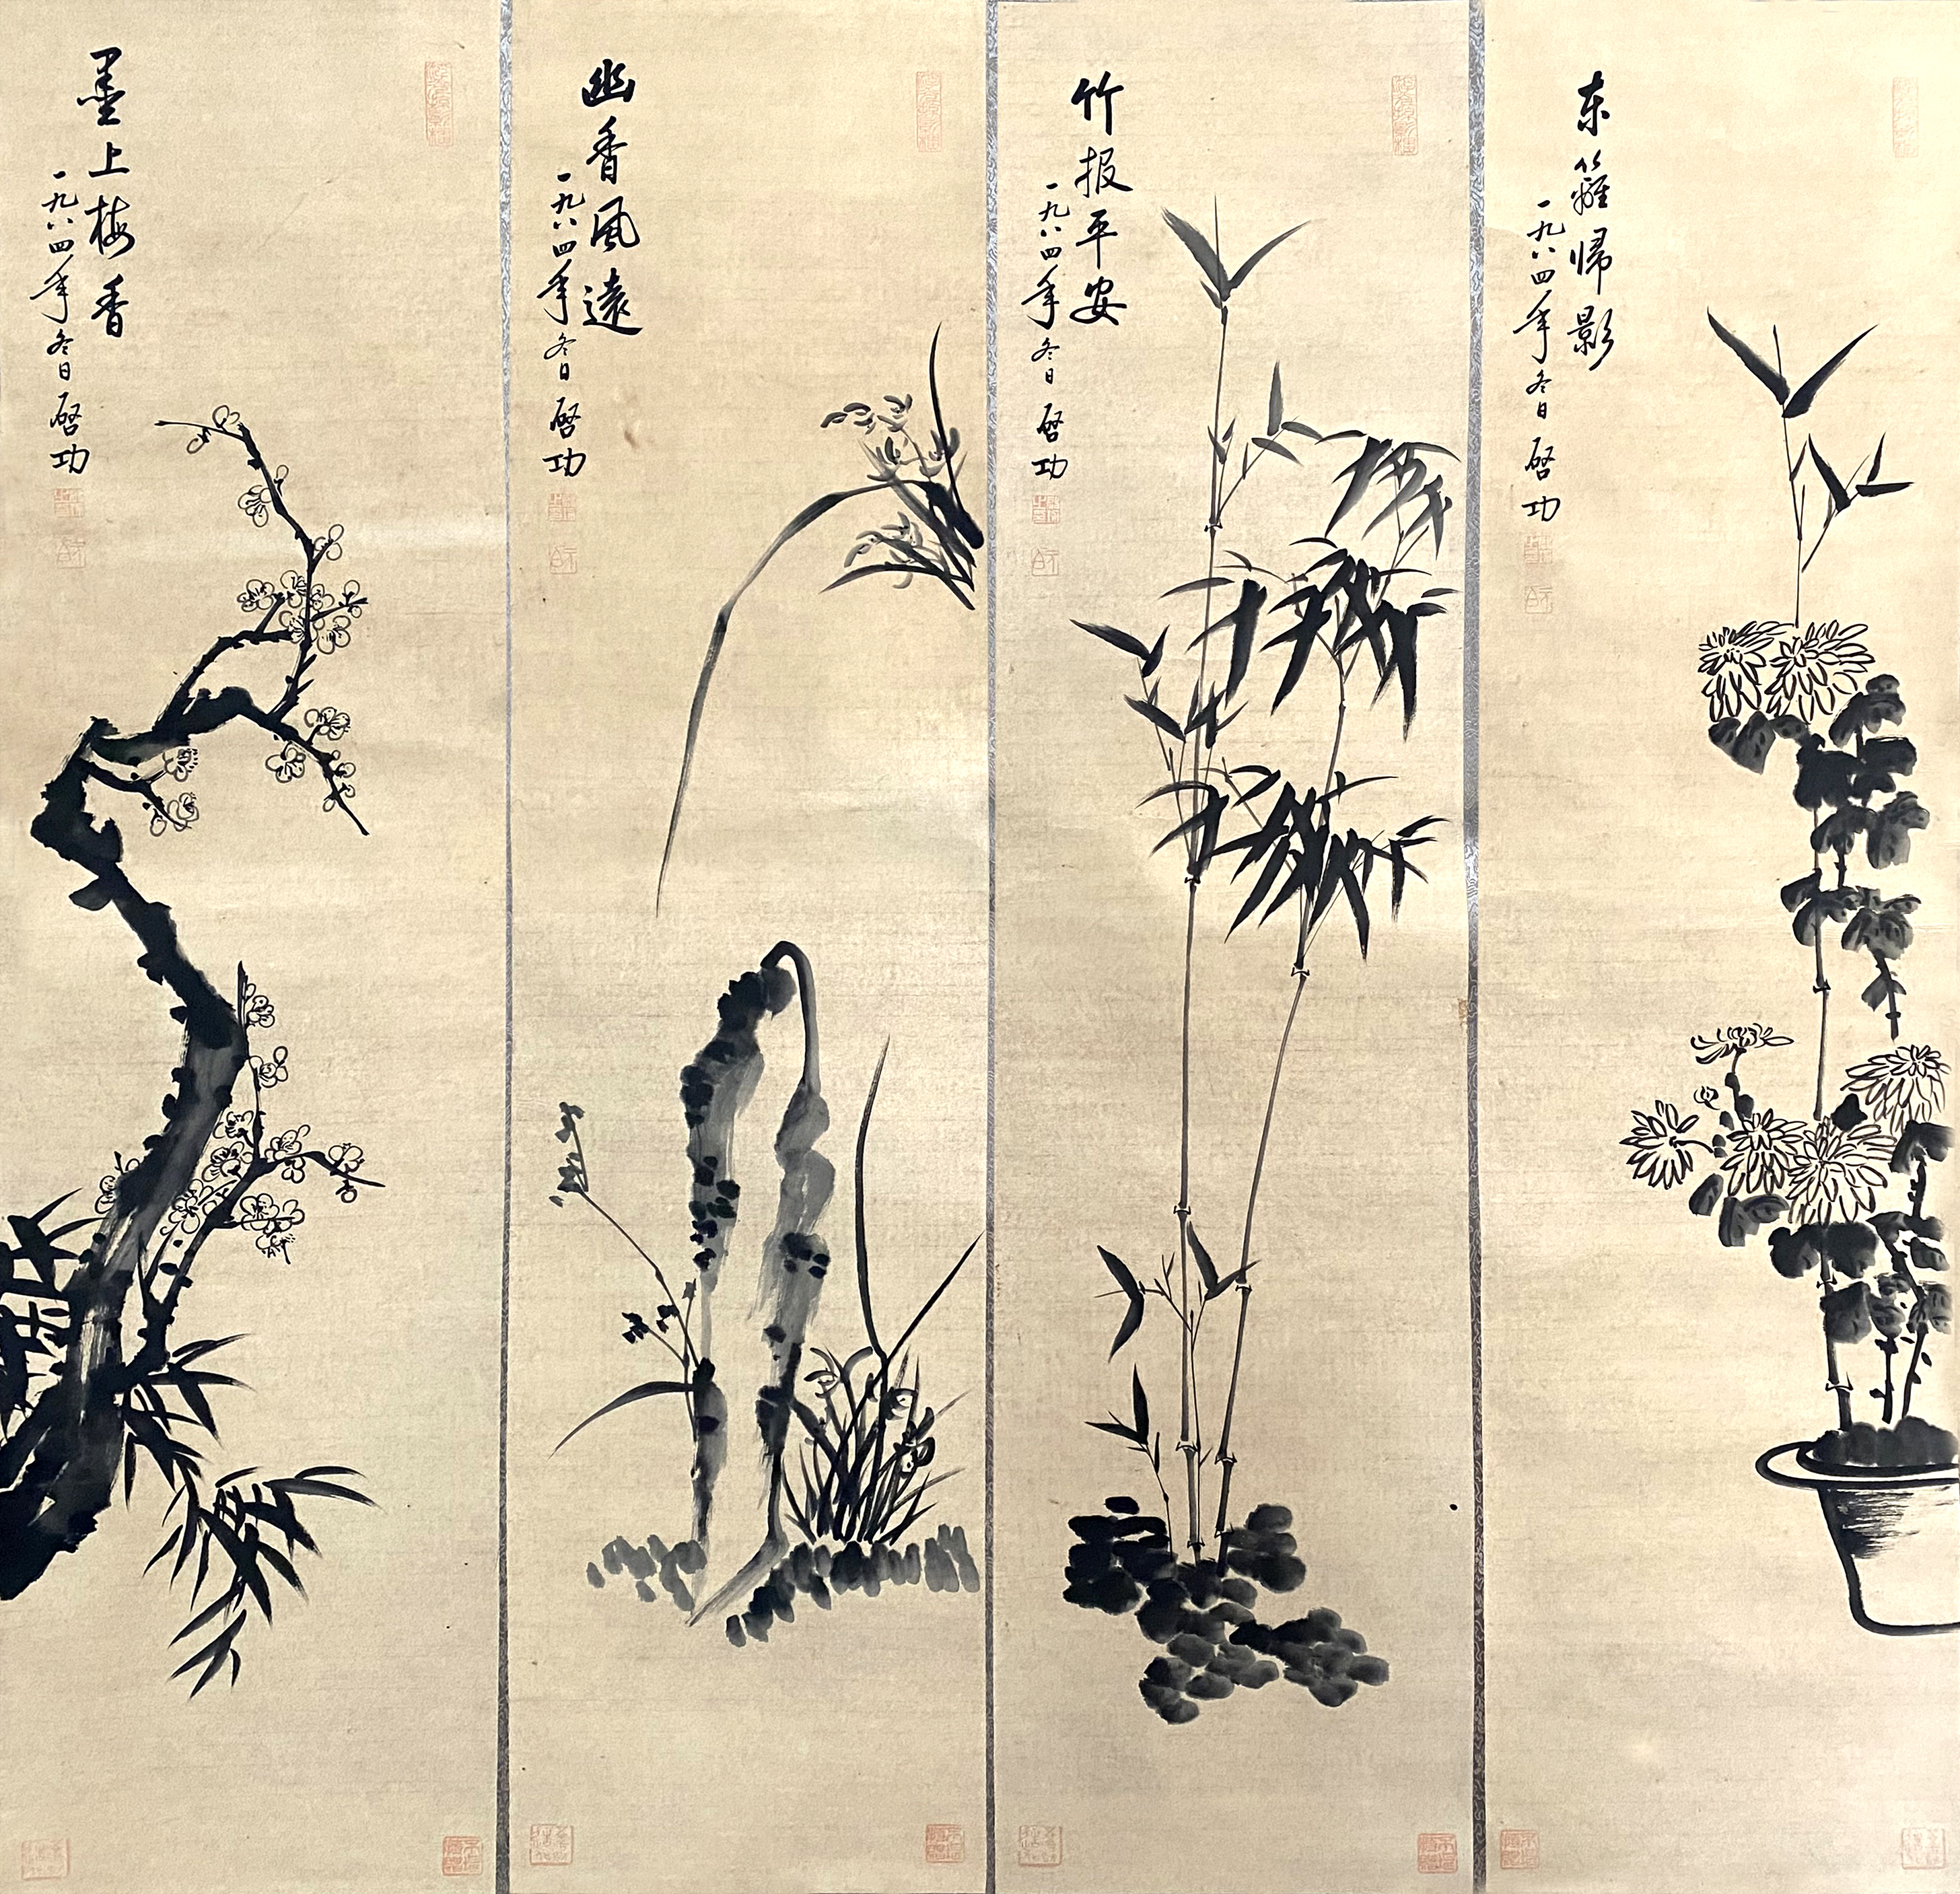 墨上梅香
一九八四年冬日 启功
幽香风遠
一九八四年冬日 启功
竹报平安
一九八四年冬日 启功
东籬帰影
一九八四年冬日 启功